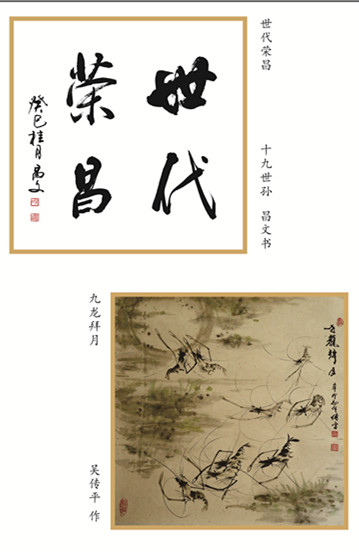 世代荣昌
十九世孙 昌文书
世代
荣昌
癸巳桂月 昌文
九龙拜月
吴传平 作